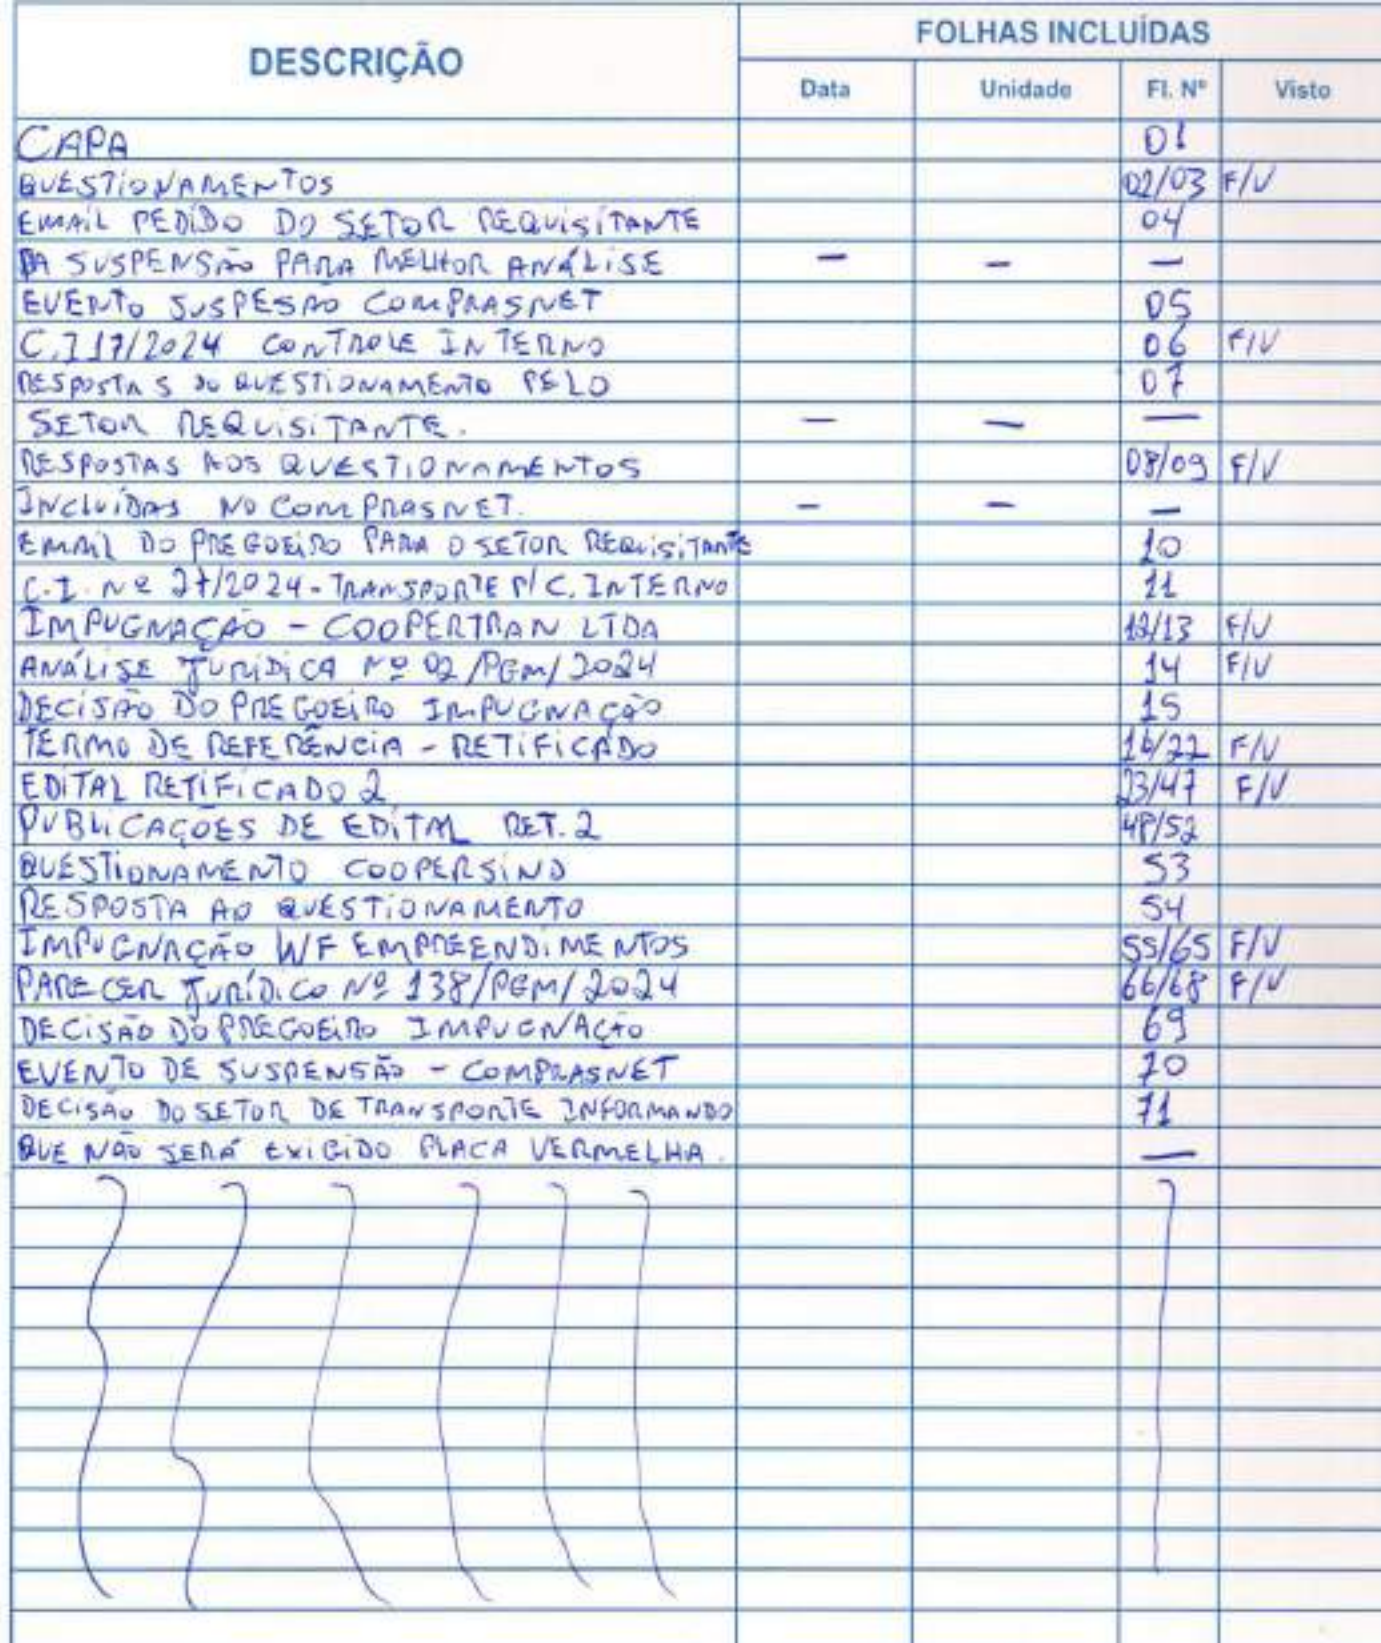 DESCRIÇÃO
FOLHAS INCLUÍDAS
Data Unidade Fl. Nº Visto
CAPA 01
QUESTIONAMENTOS 02/03 F/V
EMAIL PEDIDO DO SETOR REQUISITANTE 04
DA SUSPENSÃO PARA MELHOR ANÁLISE — — —
EVENTO SUSPESÃO COMPRASNET 05
C.I 17/2024 CONTROLE INTERNO 06 F/V
RESPOSTAS DO QUESTIONAMENTO PELO 07
SETOR REQUISITANTE. — — —
RESPOSTAS AOS QUESTIONAMENTOS 08/09 F/V
INCLUÍDAS NO COMPRASNET. — — —
EMAIL DO PREGOEIRO PARA O SETOR REQUISITANTE 10
C.I. Nº 27/2024 - TRANSPORTE P/ C. INTERNO 11
IMPUGNAÇÃO - COOPERTRAN LTDA 12/13 F/V
ANÁLISE JURÍDICA Nº 02/PGM/2024 14 F/V
DECISÃO DO PREGOEIRO IMPUGNAÇÃO 15
TERMO DE REFERÊNCIA - RETIFICADO 16/22 F/V
EDITAL RETIFICADO 2 23/47 F/V
PUBLICAÇÕES DE EDITAL RET. 2 48/52
QUESTIONAMENTO COOPERSIND 53
RESPOSTA AO QUESTIONAMENTO 54
IMPUGNAÇÃO WF EMPREENDIMENTOS 55/65 F/V
PARECER JURÍDICO Nº 138/PGM/2024 66/68 F/V
DECISÃO DO PREGOEIRO IMPUGNAÇÃO 69
EVENTO DE SUSPENSÃO - COMPRASNET 70
DECISÃO DO SETOR DE TRANSPORTE INFORMANDO 71
QUE NÃO SERÁ EXIGIDO PLACA VERMELHA. —